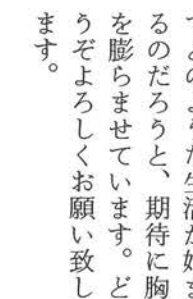 どのような生活が始ま
るのだろうと、期待に胸
を膨らませています。ど
うぞよろしくお願い致し
ます。